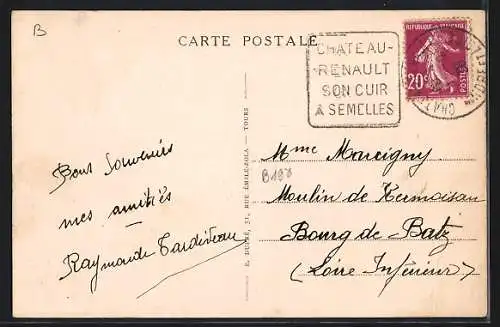 B
CARTE POSTALE
CHATEAU-
RENAULT
SON CUIR
A SEMELLES
REPUBLIQUE FRANÇAISE
20c
POSTES
Bons Souvenirs
mes amitiés
Raymonde Tardiveau
E. DUPRÉ, 31, RUE ÉMILE-ZOLA — TOURS
Mme Marcigny
B198
Moulin de Kermoisan
Bourg de Batz
(Loire Inférieure)